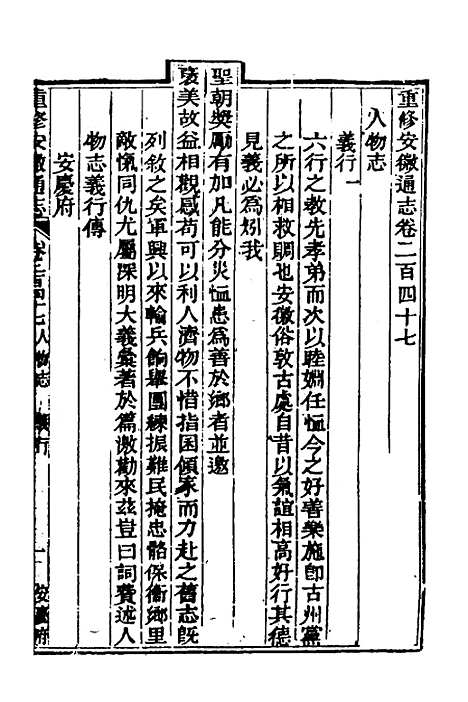 重修安徽通志卷二百四十七
人物志
義行一
六行之教先孝弟而次以睦婣任恤今之好善樂施卽古州黨
之所以相救賙也安徽俗敦古處自昔以氣誼相高好行其德
見義必爲矧我
聖朝奬勵有加凡能分災恤患爲善於鄉者並邀
褒美故益相觀感苟可以利人濟物不惜指囷傾家而力赴之舊志旣
列敘之矣軍興以來輸兵餉舉團練振難民掩忠骼保衞鄉里
敵愾同仇尤屬深明大義彙著於篇激勸來茲豈曰詞費述人
物志義行傳
安慶府
重修安徽通志 卷二百四十七 人物志 義行 一 安慶府